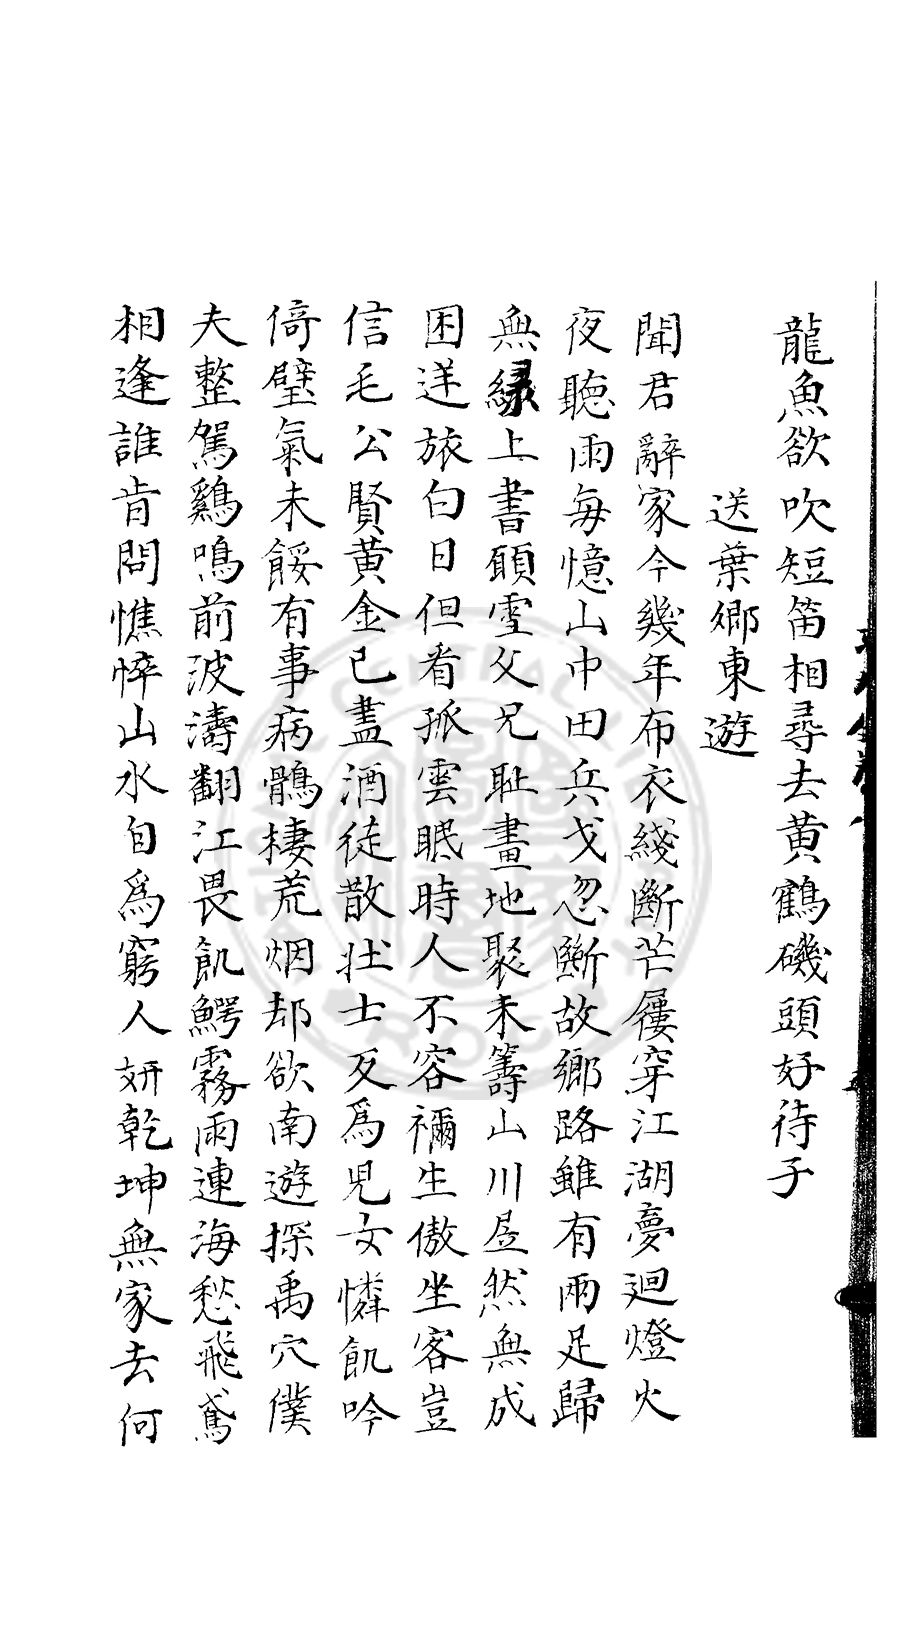 龍魚欲吹短笛相尋去黄鶴磯頭好待子
送葉鄉東遊
聞君辭家今幾年布衣綫斷芒屨穿江湖夢迴燈火
夜聽雨每憶山中田兵戈忽斷故鄉路雖有兩足歸
無緣上書願雪父兄耻畫地聚米籌山川居然無成
困逆旅白日但看孤雲眠時人不容禰生傲坐客豈
信毛公賢黄金已盡酒徒散壯士反爲兒女憐飢吟
倚壁氣未餒有事病鶻棲荒烟却欲南遊探禹穴僕
夫整駕鷄鳴前波濤翻江畏飢鰐霧雨連海愁飛鳶
相逢誰肯問憔悴山水自爲窮人妍乾坤無家去何